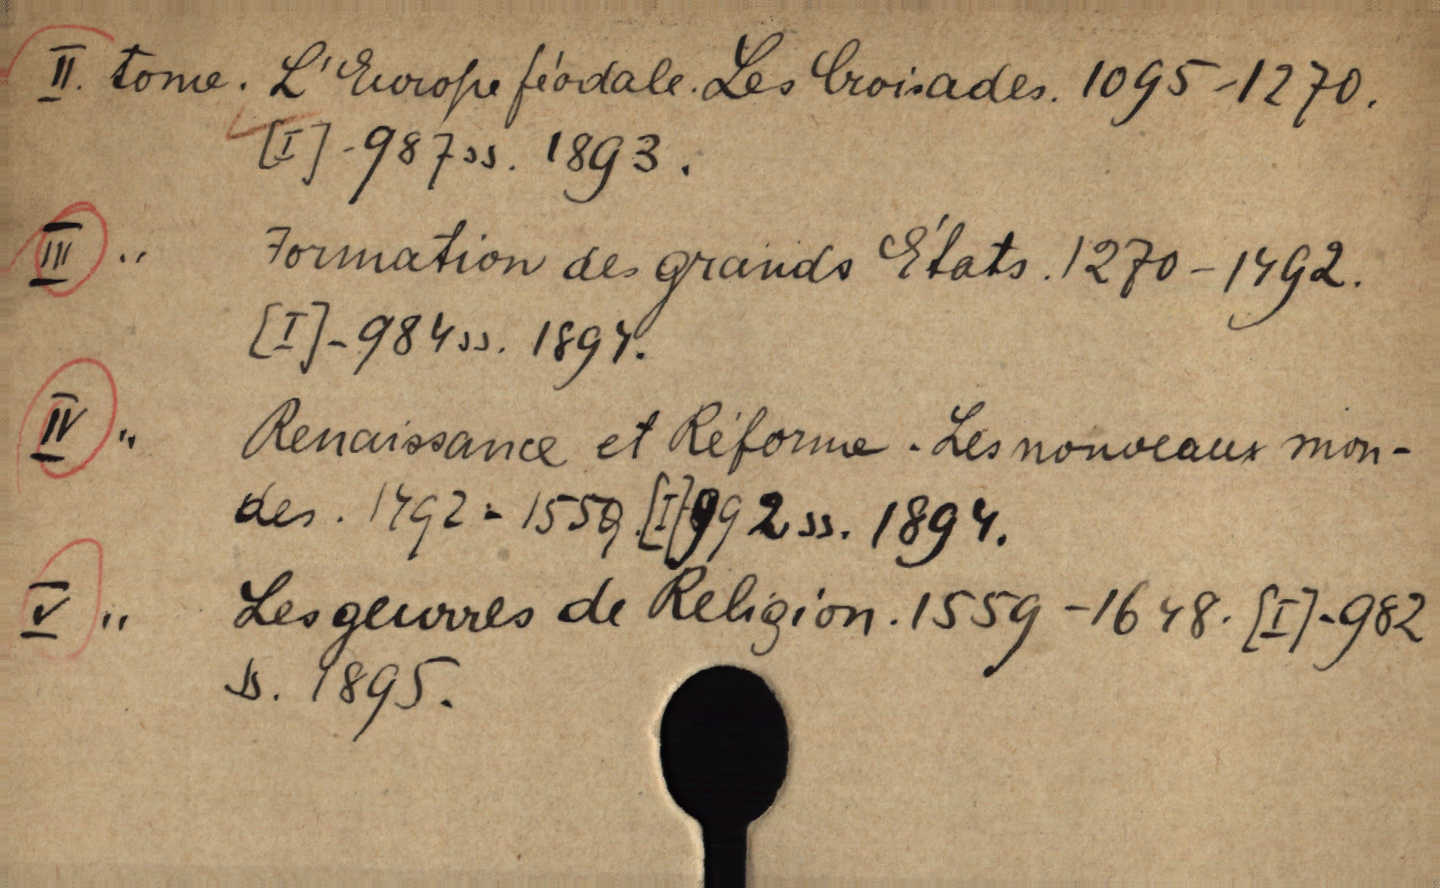 II. tome. L'Europe féodale. Les Croisades. 1095-1270.
[I]-987 ss. 1893.
III " Formation des grands États. 1270-1492.
[I]-984 ss. 1894.
IV " Renaissance et Réforme. Les nouveaux mon-
des. 1492-1559. [I]-992 ss. 1894.
V " Les geurres de Religion. 1559-1648. [I]-982
ss. 1895.